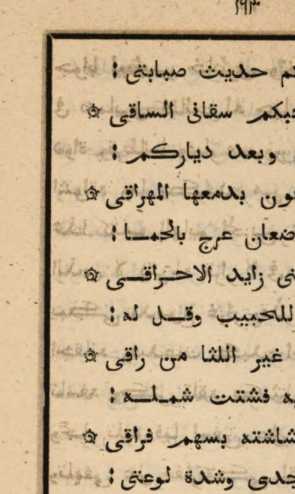 ١٩٣
حديث صبابتى :
سقانى الساقى ۞
وبعد دياركم :
بدمعها المهراقى ۞
عرج بالحمــا :
زايد الاحـراقــى ۞
للحبيب وقــل له :
غير اللثا من راقى ۞
فشتت شملــه :
بسهم فراقى ۞
وشدة لوعتى :